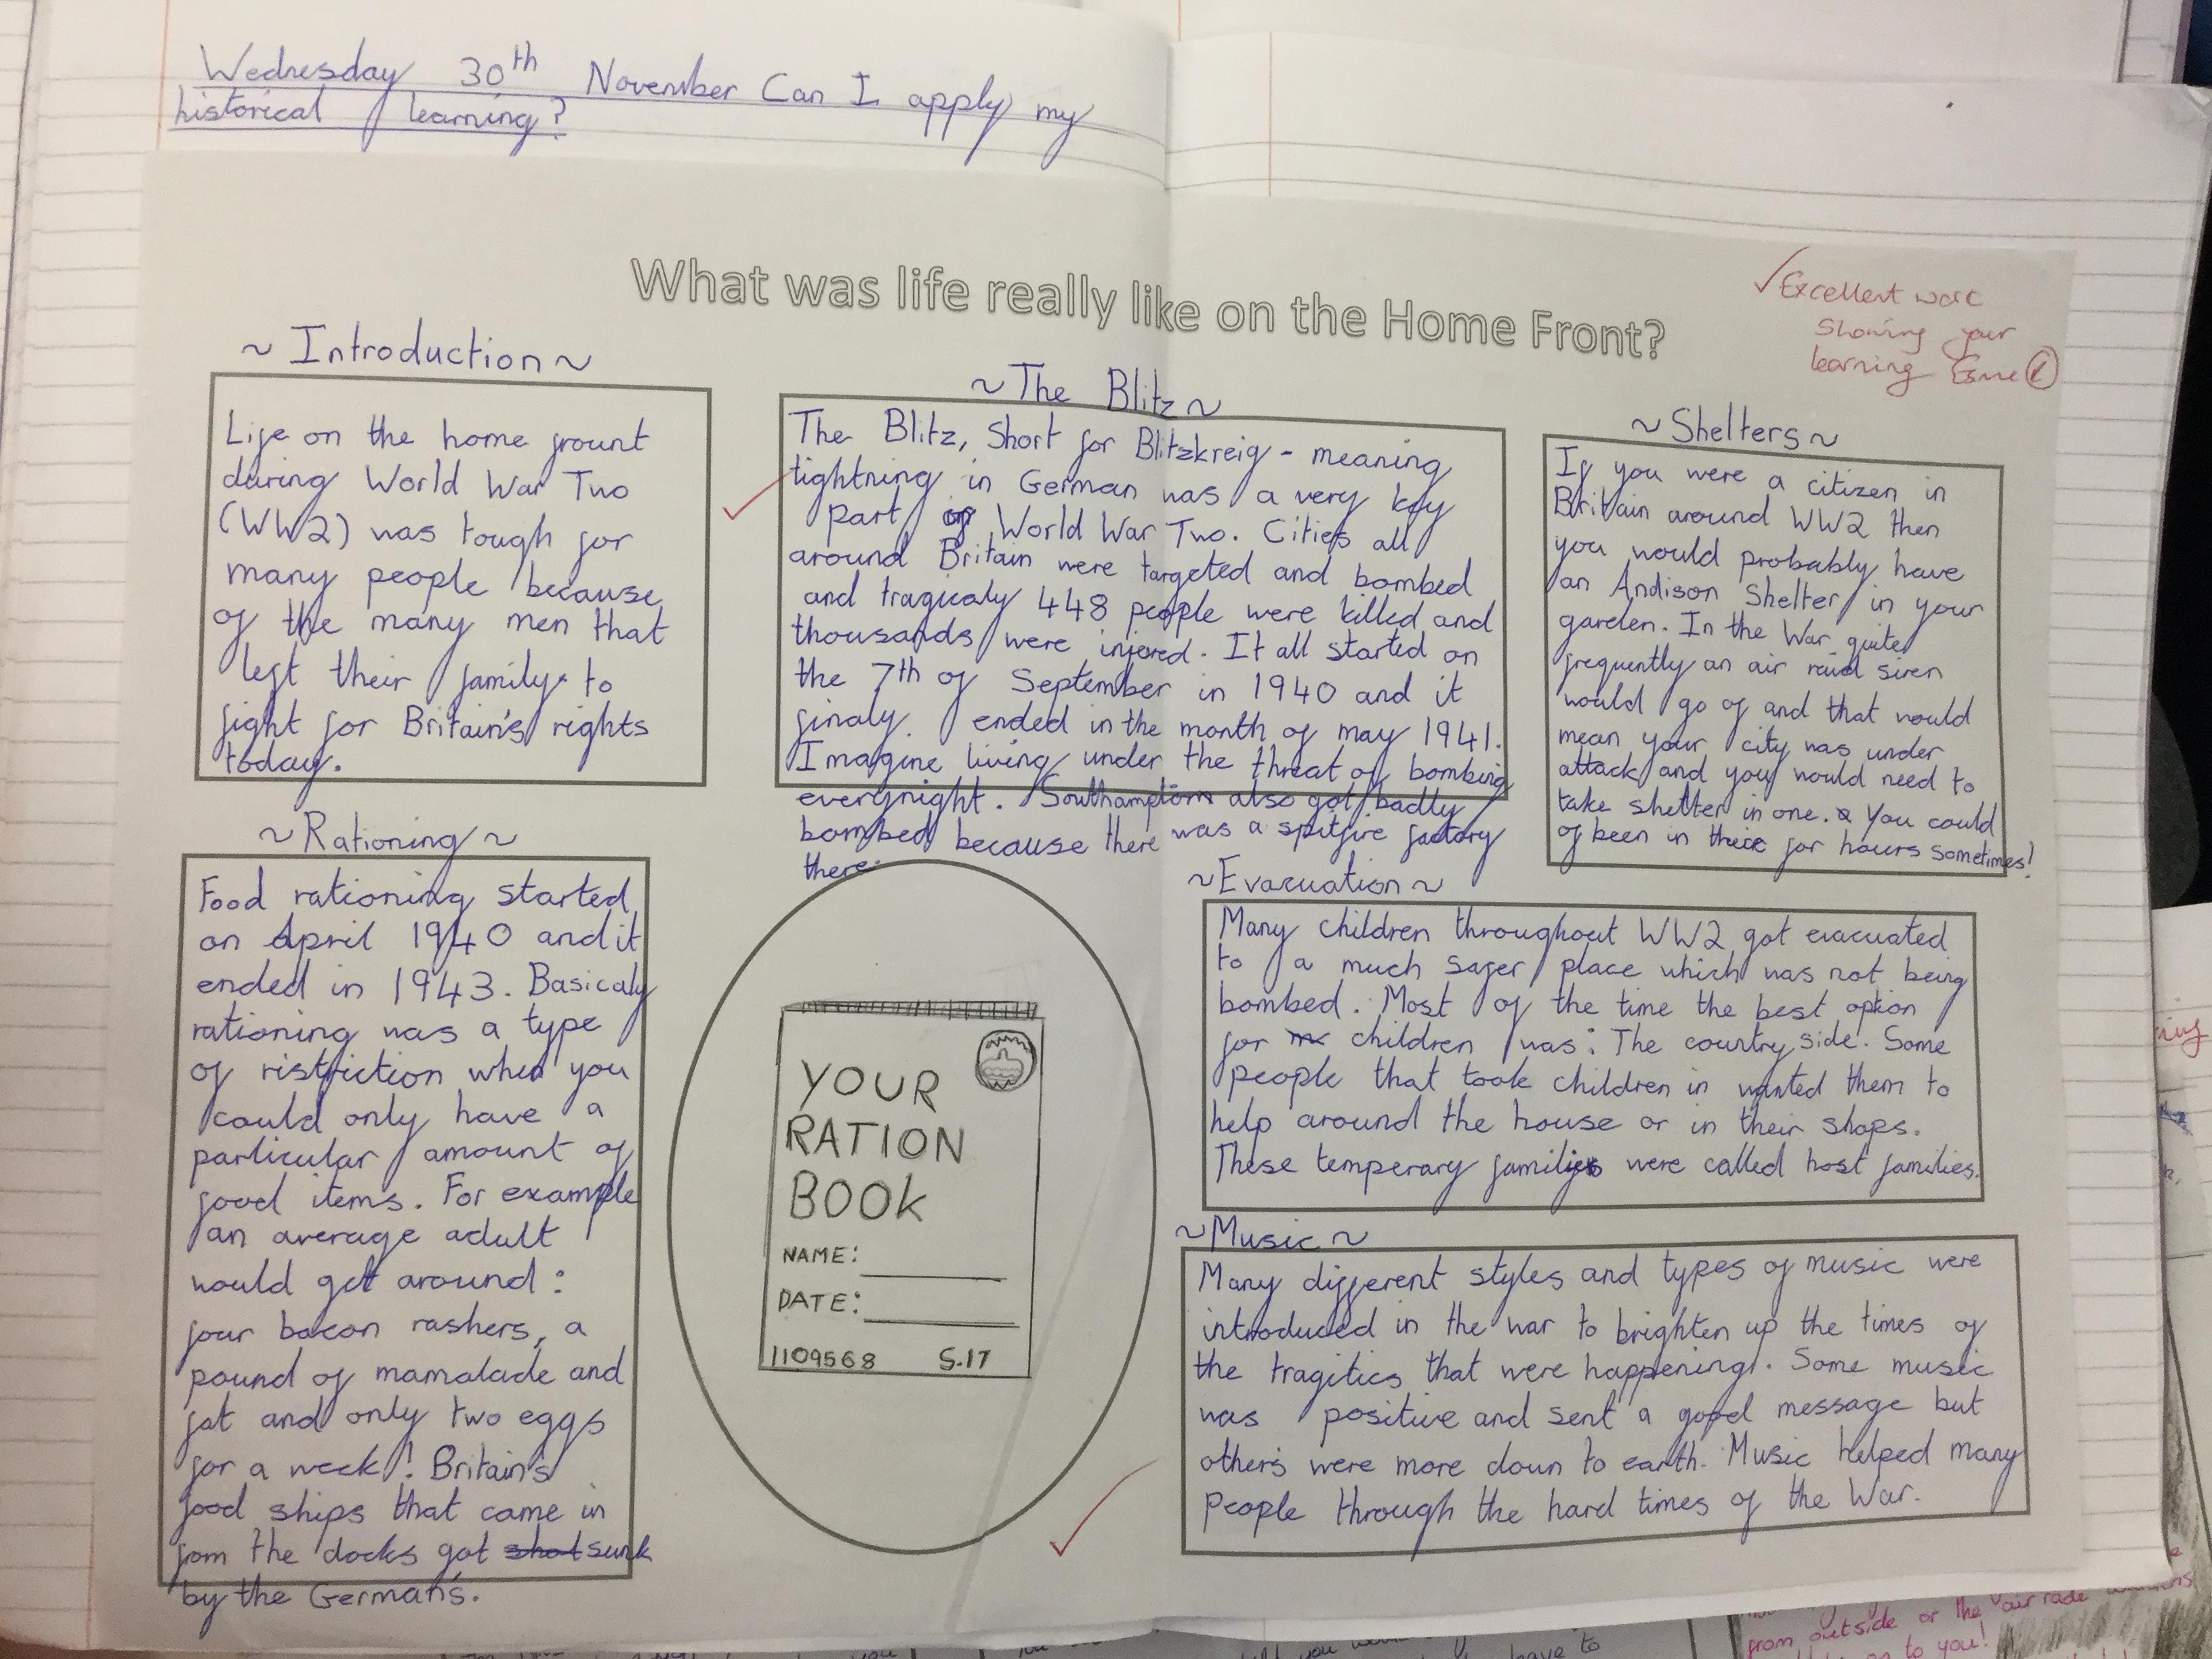 Wednesday 30th November Can I apply my
historical learning?
What was life really like on the Home Front?
✓Excellent work
Showing your
learning Esme
~ Introduction ~
Life on the home frount
during World War Two
(WW2) was tough for
many people because
of the many men that
left their family to
fight for Britain's rights
today.
~ The Blitz ~
The Blitz, Short for Blitzkreig - meaning
lightning in German was a very key
part of World War Two. Cities all
around Britain were targeted and bombed
and tragicaly 448 people were killed and
thousands were injered. It all started on
the 7th of September in 1940 and it
finaly ended in the month of may 1941.
Imagine living under the threat of bombing
everynight. Southampton also got badly
bombed because there was a spitfire factory
there.
~ Shelters ~
If you were a citizen in
Britain around WW2 then
you would probably have
an Andison Shelter in your
garden. In the War quite
frequently an air raid siren
would go of and that would
mean your city was under
attack and you would need to
take shelter in one. You could
of been in there for hours sometimes!
~ Rationing ~
Food rationing started
on April 1940 and it
ended in 1943. Basicaly
rationing was a type
of ristriction when you
could only have a
particular amount of
food items. For example
an average adult
would get around:
four bacon rashers, a
pound of mamalade and
fat and only two eggs
for a week! Britain's
food ships that came in
fom the docks got shot sunk
by the German's.
YOUR
RATION
BOOK
NAME:
DATE:
1109568 S.17
~ Evacuation ~
Many children throughout WW2 got evacuated
to a much safer place which was not being
bombed. Most of the time the best option
for children was: The country side. Some
people that took children in wanted them to
help around the house or in their shops.
These temperary families were called host families.
~ Music ~
Many different styles and types of music were
introduced in the war to brighten up the times of
the tragitics that were happening. Some music
was positive and sent a good message but
others were more down to earth. Music helped many
people through the hard times of the War.
from outside or the air rade
to you!
have to